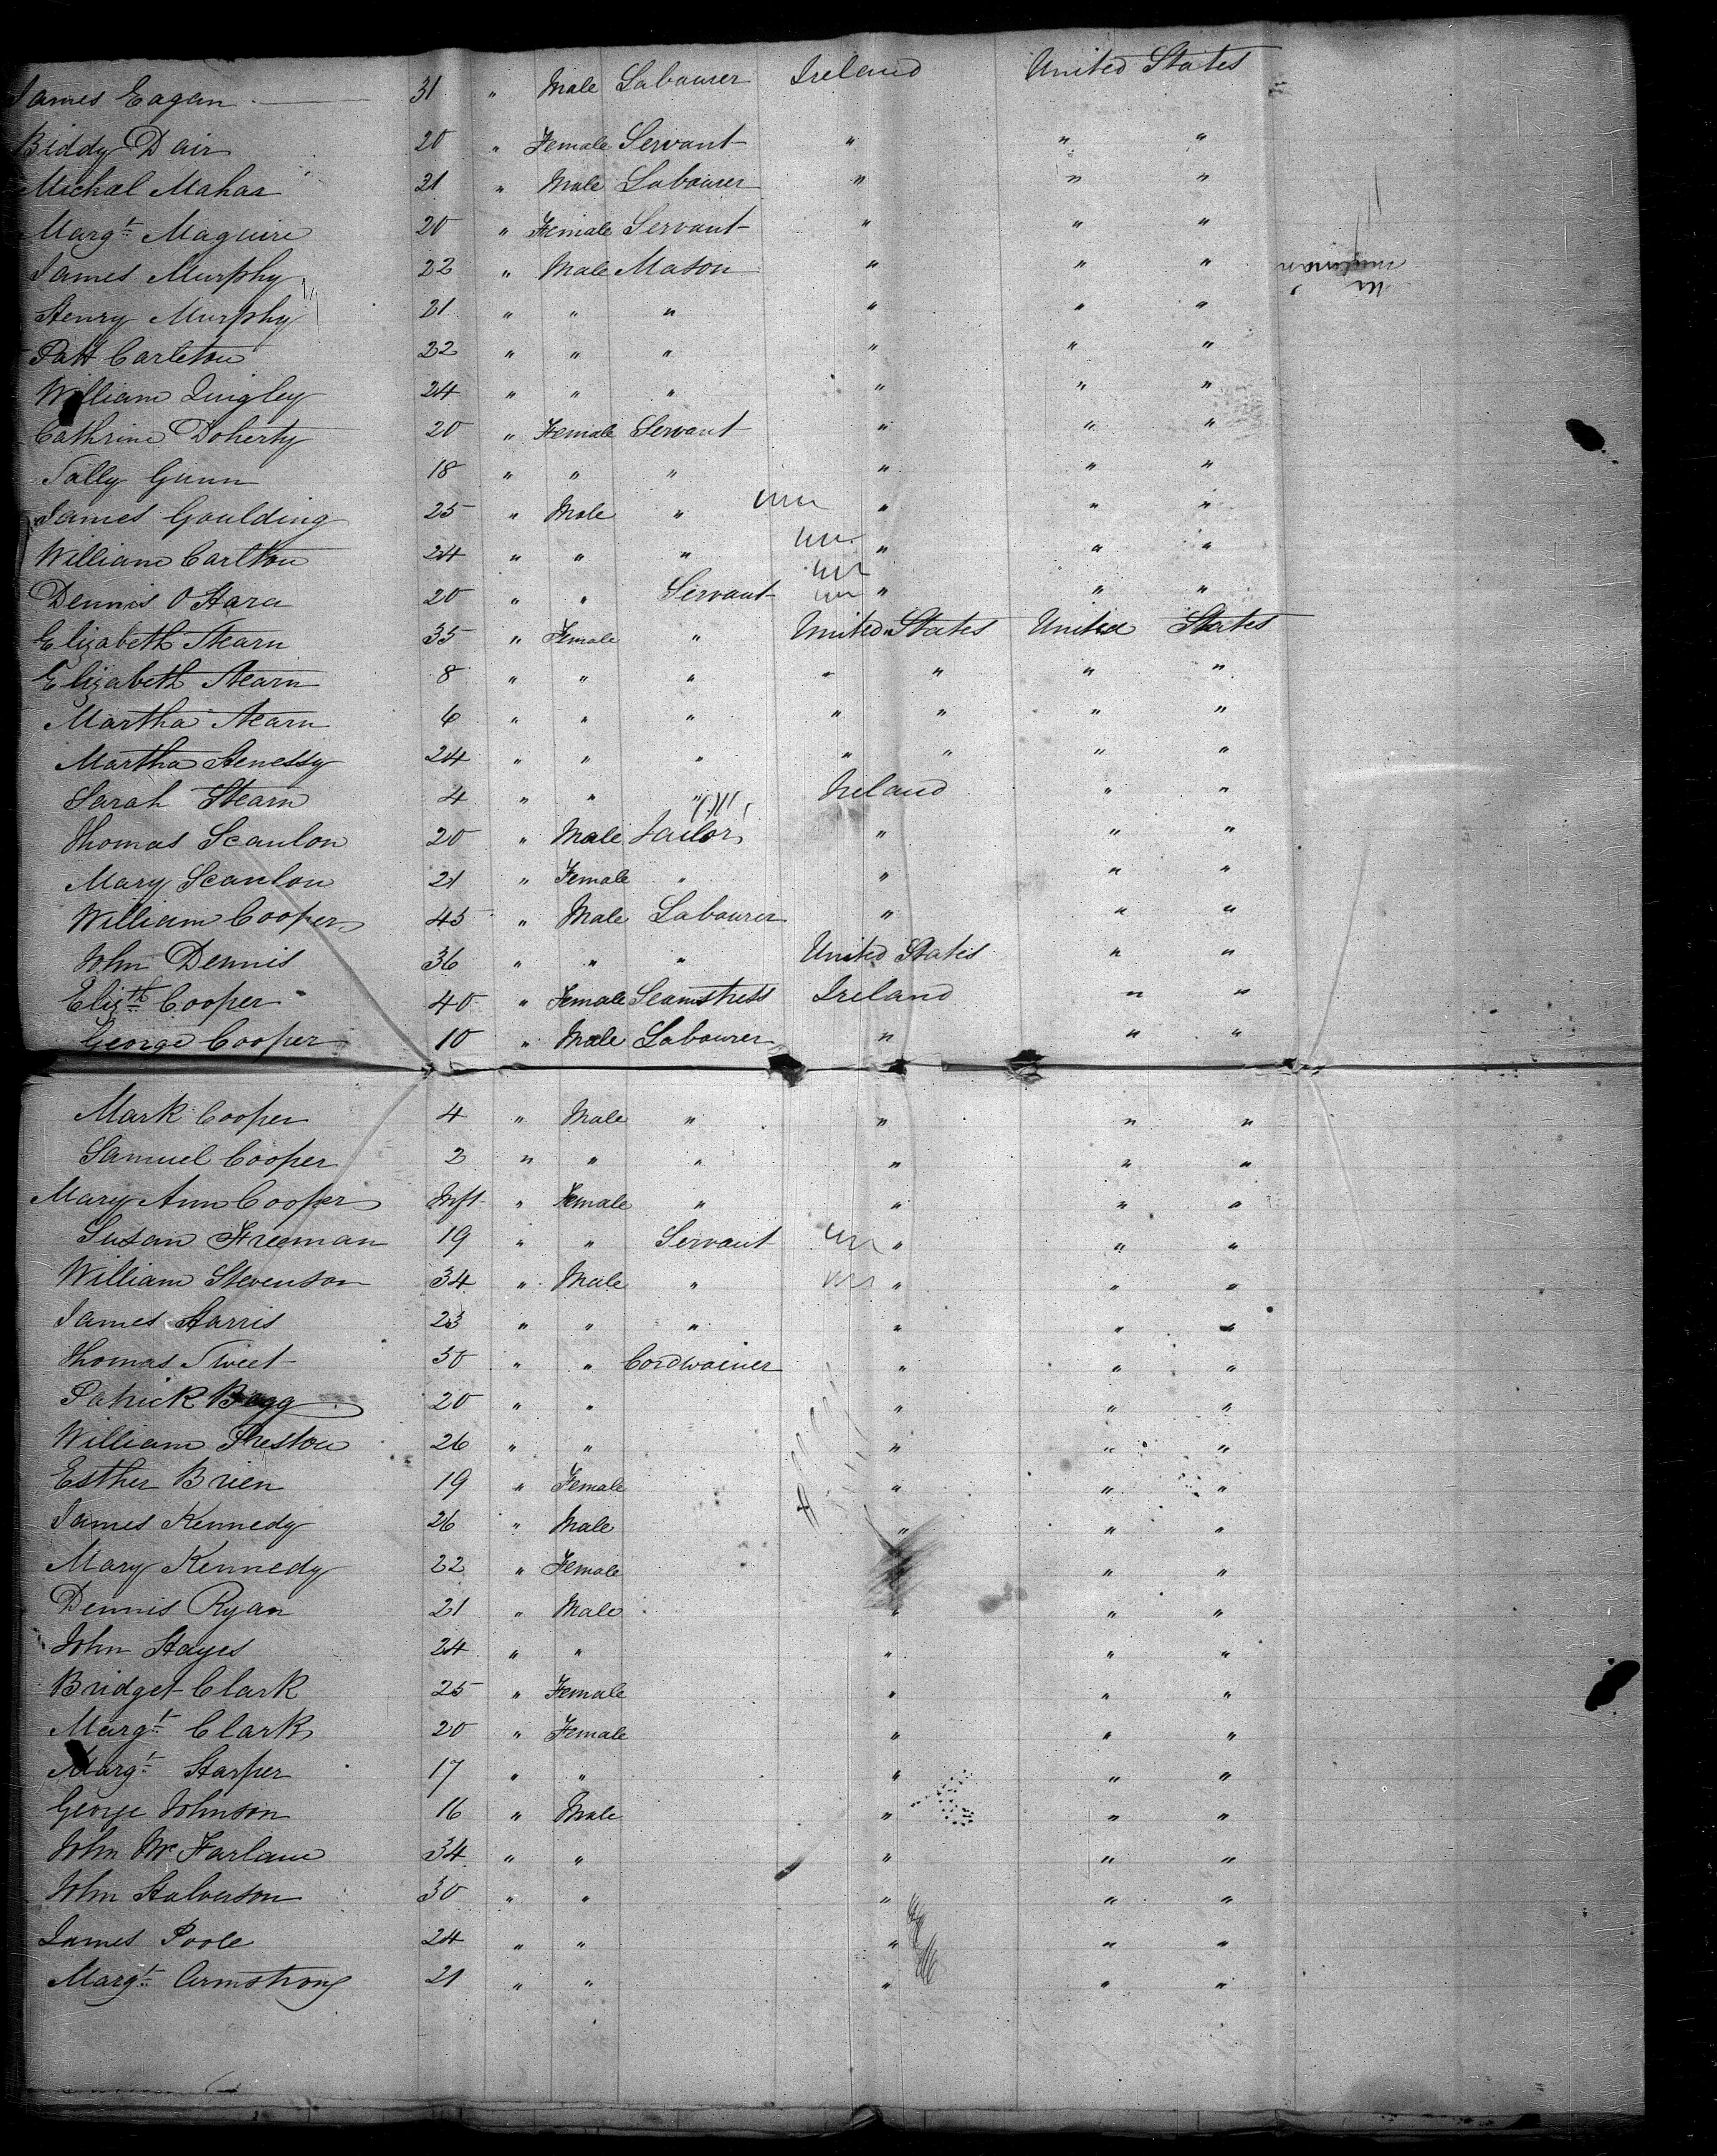 James Eagan 31 " Male Labourer Ireland United States
Biddy Dair 20 " Female Servant " " "
Michael Mahar 21 " Male Labourer " " "
Margt Maguire 20 " Female Servant " " "
James Murphy 22 " Male Mason " " "
Henry Murphy 21 " " " " " "
Patt Carleton 22 " " " " " "
William Quigley 24 " " " " " "
Cathrine Doherty 20 " Female Servant " " "
Sally Gunn 18 " " " " " "
James Goulding 25 " Male " " " "
William Carlton 24 " " " " " "
Dennis O Hara 20 " " Servant " " "
Elizabeth Hearn 35 " Female " United States United States
Elizabeth Hearn 8 " " " " " " "
Martha Hearn 6 " " " " " " "
Martha Henessy 24 " " " " " " "
Sarah Hearn 4 " " " Ireland " "
Thomas Scanlon 20 " Male Tailor " " "
Mary Scanlon 21 " Female " " " "
William Cooper 45 " Male Labourer " " "
John Dennis 36 " " " United States " "
Elizth Cooper 40 " Female Seamstress Ireland " "
George Cooper 10 " Male Labourer " " "
Mark Cooper 4 " Male " " " "
Samuel Cooper 2 " " " " " "
Mary Ann Cooper Inft " Female " " " "
Susan Freeman 19 " " Servant " " "
William Stevenson 34 " Male " " " "
James Harris 23 " " " " " "
Thomas Sweet 30 " " Cordwainer " " "
Patrick Begg 20 " " " " "
William Preston 26 " " " " "
Esther Brien 19 " Female " " "
James Kennedy 26 " Male " " "
Mary Kennedy 22 " Female " "
Dennis Ryan 21 " Male " " "
John Hayes 24 " " " " "
Bridget Clark 25 " Female " " "
Margt Clark 20 " Female " " "
Margt Harper 17 " " " " "
George Johnson 16 " Male " " "
John McFarlane 34 " " " " "
John Halverson 30 " " " " "
James Poole 24 " " " " "
Margt Armstrong 21 " " " " "